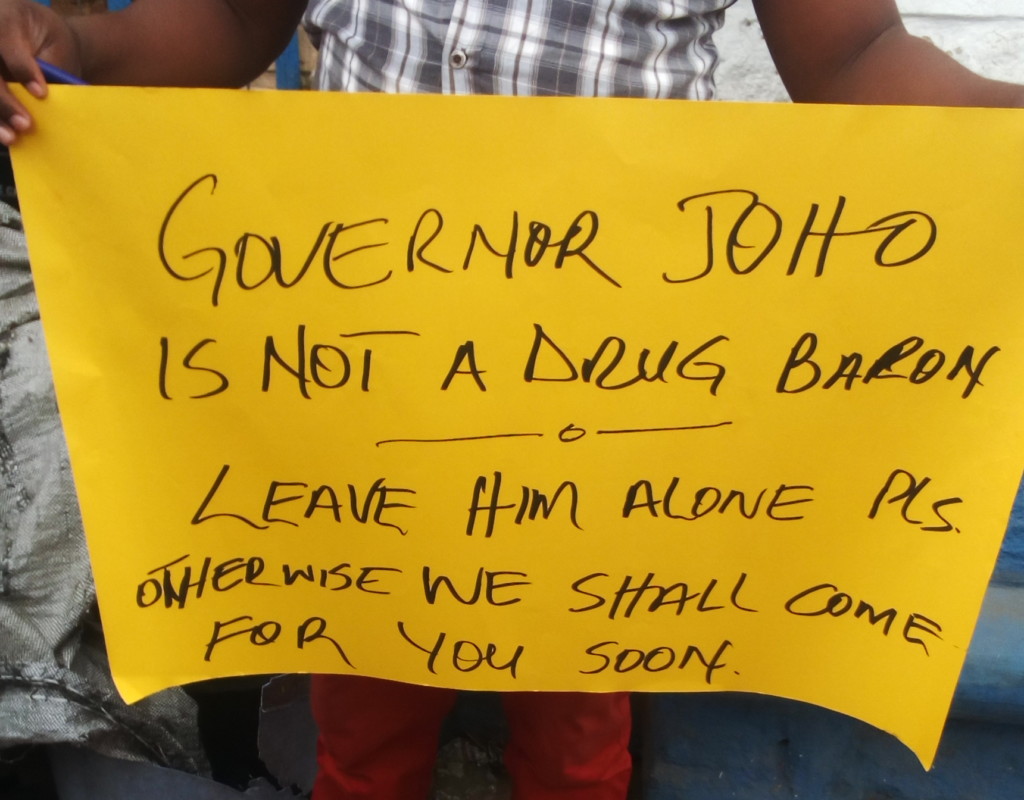 GOVERNOR JOHO
IS NOT A DRUG BARON
LEAVE HIM ALONE PLS.
OTHERWISE WE SHALL COME
FOR YOU SOON.